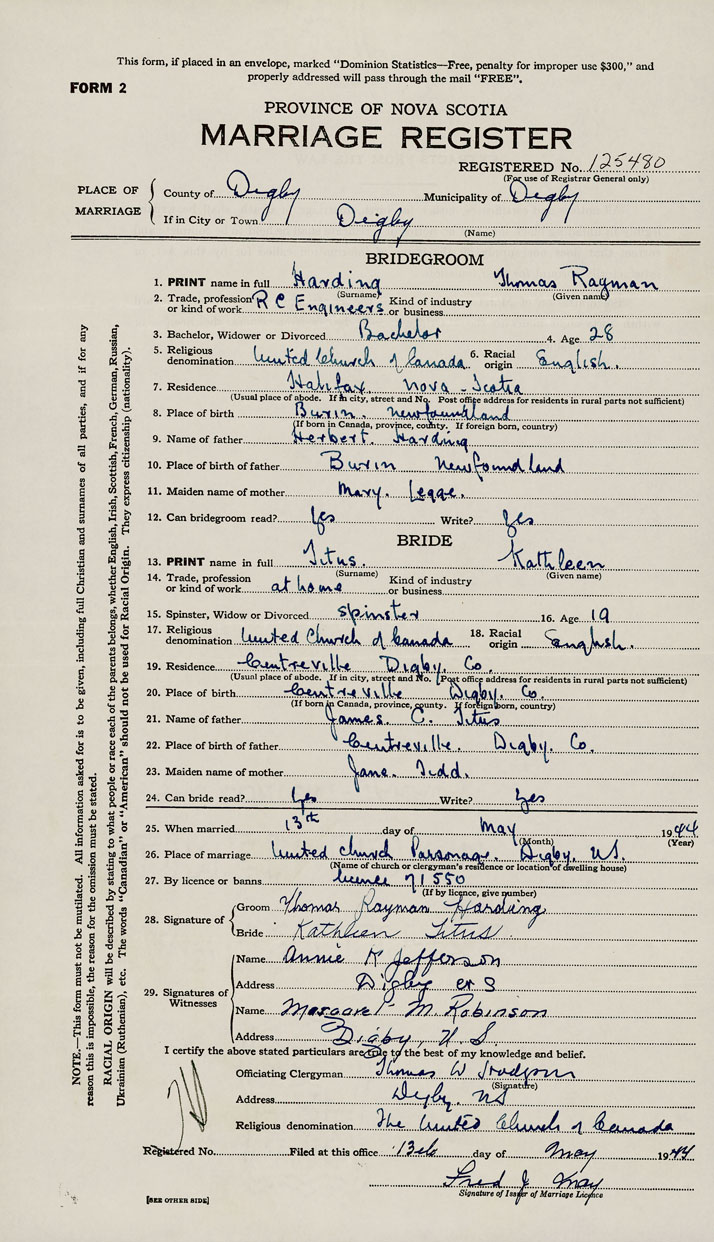 This form, if placed in an envelope, marked "Dominion Statistics—Free, penalty for improper use $300," and
properly addressed will pass through the mail "FREE".
FORM 2
PROVINCE OF NOVA SCOTIA
MARRIAGE REGISTER
REGISTERED No. 125480
(For use of Registrar General only)
PLACE OF MARRIAGE
County of Digby Municipality of Digby
If in City or Town Digby
(Name)
BRIDEGROOM
1. PRINT name in full Harding Thomas Rayman
(Surname) (Given name)
2. Trade, profession or kind of work R C Engineers Kind of industry or business
3. Bachelor, Widower or Divorced Bachelor 4. Age 28
5. Religious denomination United Church of Canada 6. Racial origin English.
7. Residence Halifax. Nova-Scotia
(Usual place of abode. If in city, street and No. Post office address for residents in rural parts not sufficient)
8. Place of birth Burin. Newfoundland
(If born in Canada, province, county. If foreign born, country)
9. Name of father Herbert. Harding
10. Place of birth of father Burin Newfoundland
11. Maiden name of mother Mary. Legge.
12. Can bridegroom read? Yes Write? Yes
BRIDE
13. PRINT name in full Titus. Kathleen
(Surname) (Given name)
14. Trade, profession or kind of work at home Kind of industry or business
15. Spinster, Widow or Divorced spinster 16. Age 19
17. Religious denomination United Church of Canada 18. Racial origin English.
19. Residence Centreville Digby. Co.
(Usual place of abode. If in city, street and No. Post office address for residents in rural parts not sufficient)
20. Place of birth Centreville Digby. Co.
(If born in Canada, province, county. If foreign born, country)
21. Name of father James C. Titus
22. Place of birth of father Centreville. Digby. Co.
23. Maiden name of mother Jane. Tidd.
24. Can bride read? Yes Write? Yes
25. When married 13th day of May 1944
(Month) (Year)
26. Place of marriage United Church Parsonage. Digby. N.S.
(Name of church or clergyman's residence or location of dwelling house)
27. By licence or banns licence 71550
(If by licence, give number)
28. Signature of
Groom Thomas Rayman Harding
Bride Kathleen Titus
29. Signatures of Witnesses
Name Annie K Jefferson
Address Digby
Name Margaret M. Robinson
Address Digby, N.S.
I certify the above stated particulars are true to the best of my knowledge and belief.
Officiating Clergyman Thomas W Hodgson
(Signature)
Address Digby. NS
Religious denomination The United Church of Canada
Registered No. Filed at this office 13th day of May 1944
Fred J May
Signature of Issuer of Marriage Licence
[SEE OTHER SIDE]
NOTE.—This form must not be mutilated. All information asked for is to be given, including full Christian and surnames of all parties, and if for any
reason this is impossible, the reason for the omission must be stated.
RACIAL ORIGIN will be described by stating to what people or race each of the parents belongs, whether English, Irish, Scottish, French, German, Russian,
Ukrainian (Ruthenian), etc. The words "Canadian" or "American" should not be used for Racial Origin. They express citizenship (nationality).